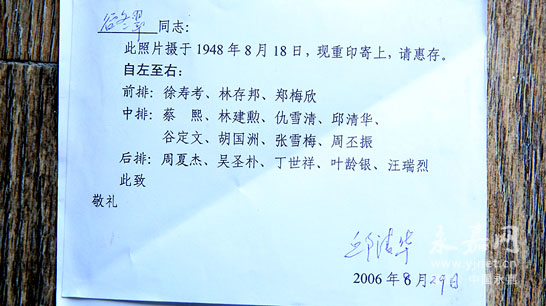 谷冬翠 同志:
此照片摄于1948年8月18日，现重印寄上，请惠存。
自左至右:
前排: 徐寿考、林存邦、郑梅欣
中排: 蔡 熙、林建勲、仇雪清、邱清华、
谷定文、胡国洲、张雪梅、周丕振
后排: 周夏杰、吴圣朴、丁世祥、叶龄银、汪瑞烈
此致
敬礼
邱清华
2006年8月29日
永嘉网
www.yjnet.cn
中国永嘉